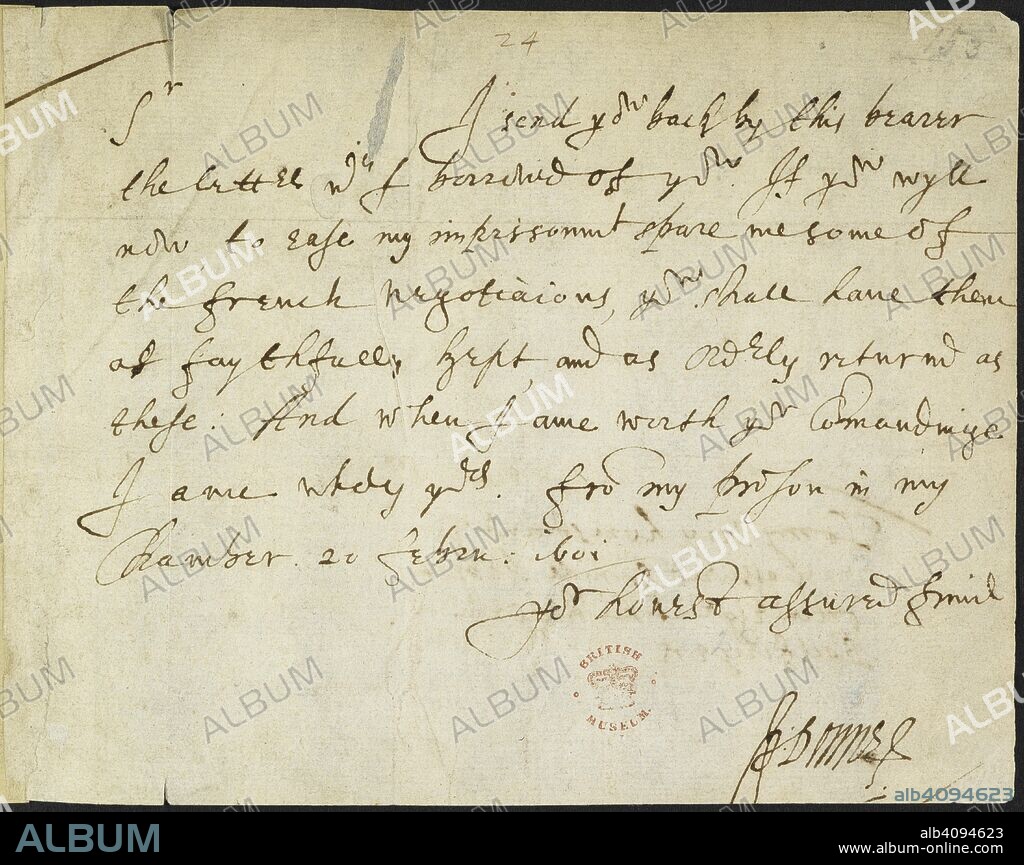 24
153
Sr I send yow back by this bearer
the letters wch I borrowd of yow. If yow wyll
now to ease my imprisonmt spare me some of
the french negotiacions, yow shall have them
as faythfully kept, and as orderly returnd as
these: And when I ame worth yor Comandinge
I ame wholy yors. Fro my prison in my
Chamber. 20 Febru: 1601
yor honest assured frind
BRITISH
MUSEUM
Jo: Donne
alb4094623
ALBUM
alb4094623
www.album-online.com